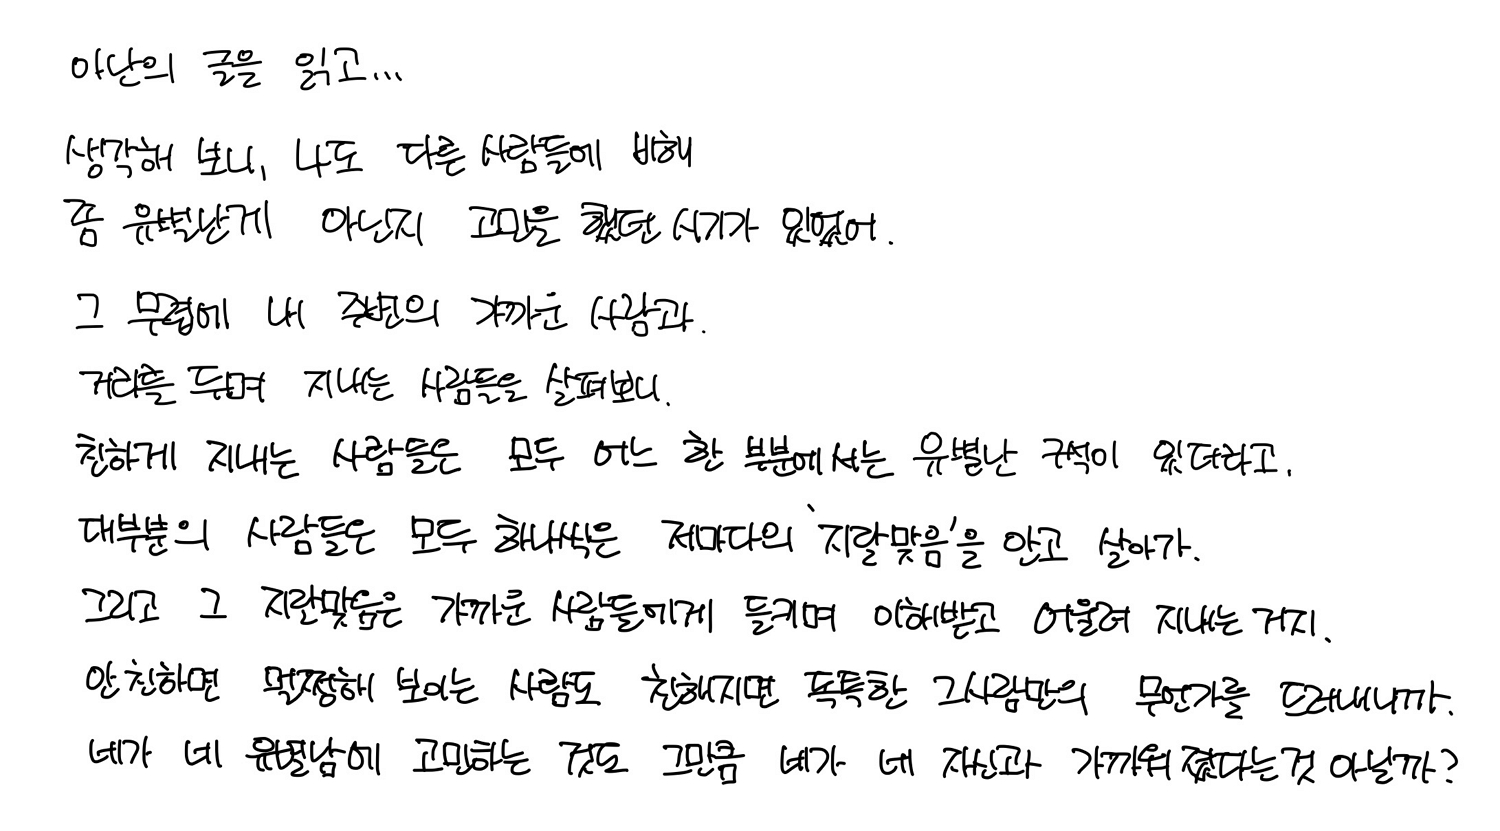 아난의 글을 읽고...
생각해 보니, 나도 다른 사람들에 비해
좀 유별난게 아닌지 고민을 했던 시기가 있었어.
그 무렵에 내 주변의 가까운 사람과.
거리를 두며 지내는 사람들을 살펴보니.
친하게 지내는 사람들은 모두 어느 한 부분에서는 유별난 구석이 있더라고.
대부분의 사람들은 모두 하나씩은 저마다의 '지랄맞음'을 안고 살아가.
그리고 그 지랄맞음은 가까운 사람들에게 들키며 이해받고 어울려 지내는 거지.
안 친하면 멀쩡해 보이는 사람도 친해지면 독특한 그사람만의 무언가를 드러내니까.
네가 네 유별남에 고민하는 것도 그만큼 네가 네 자신과 가까워 졌다는것 아닐까?